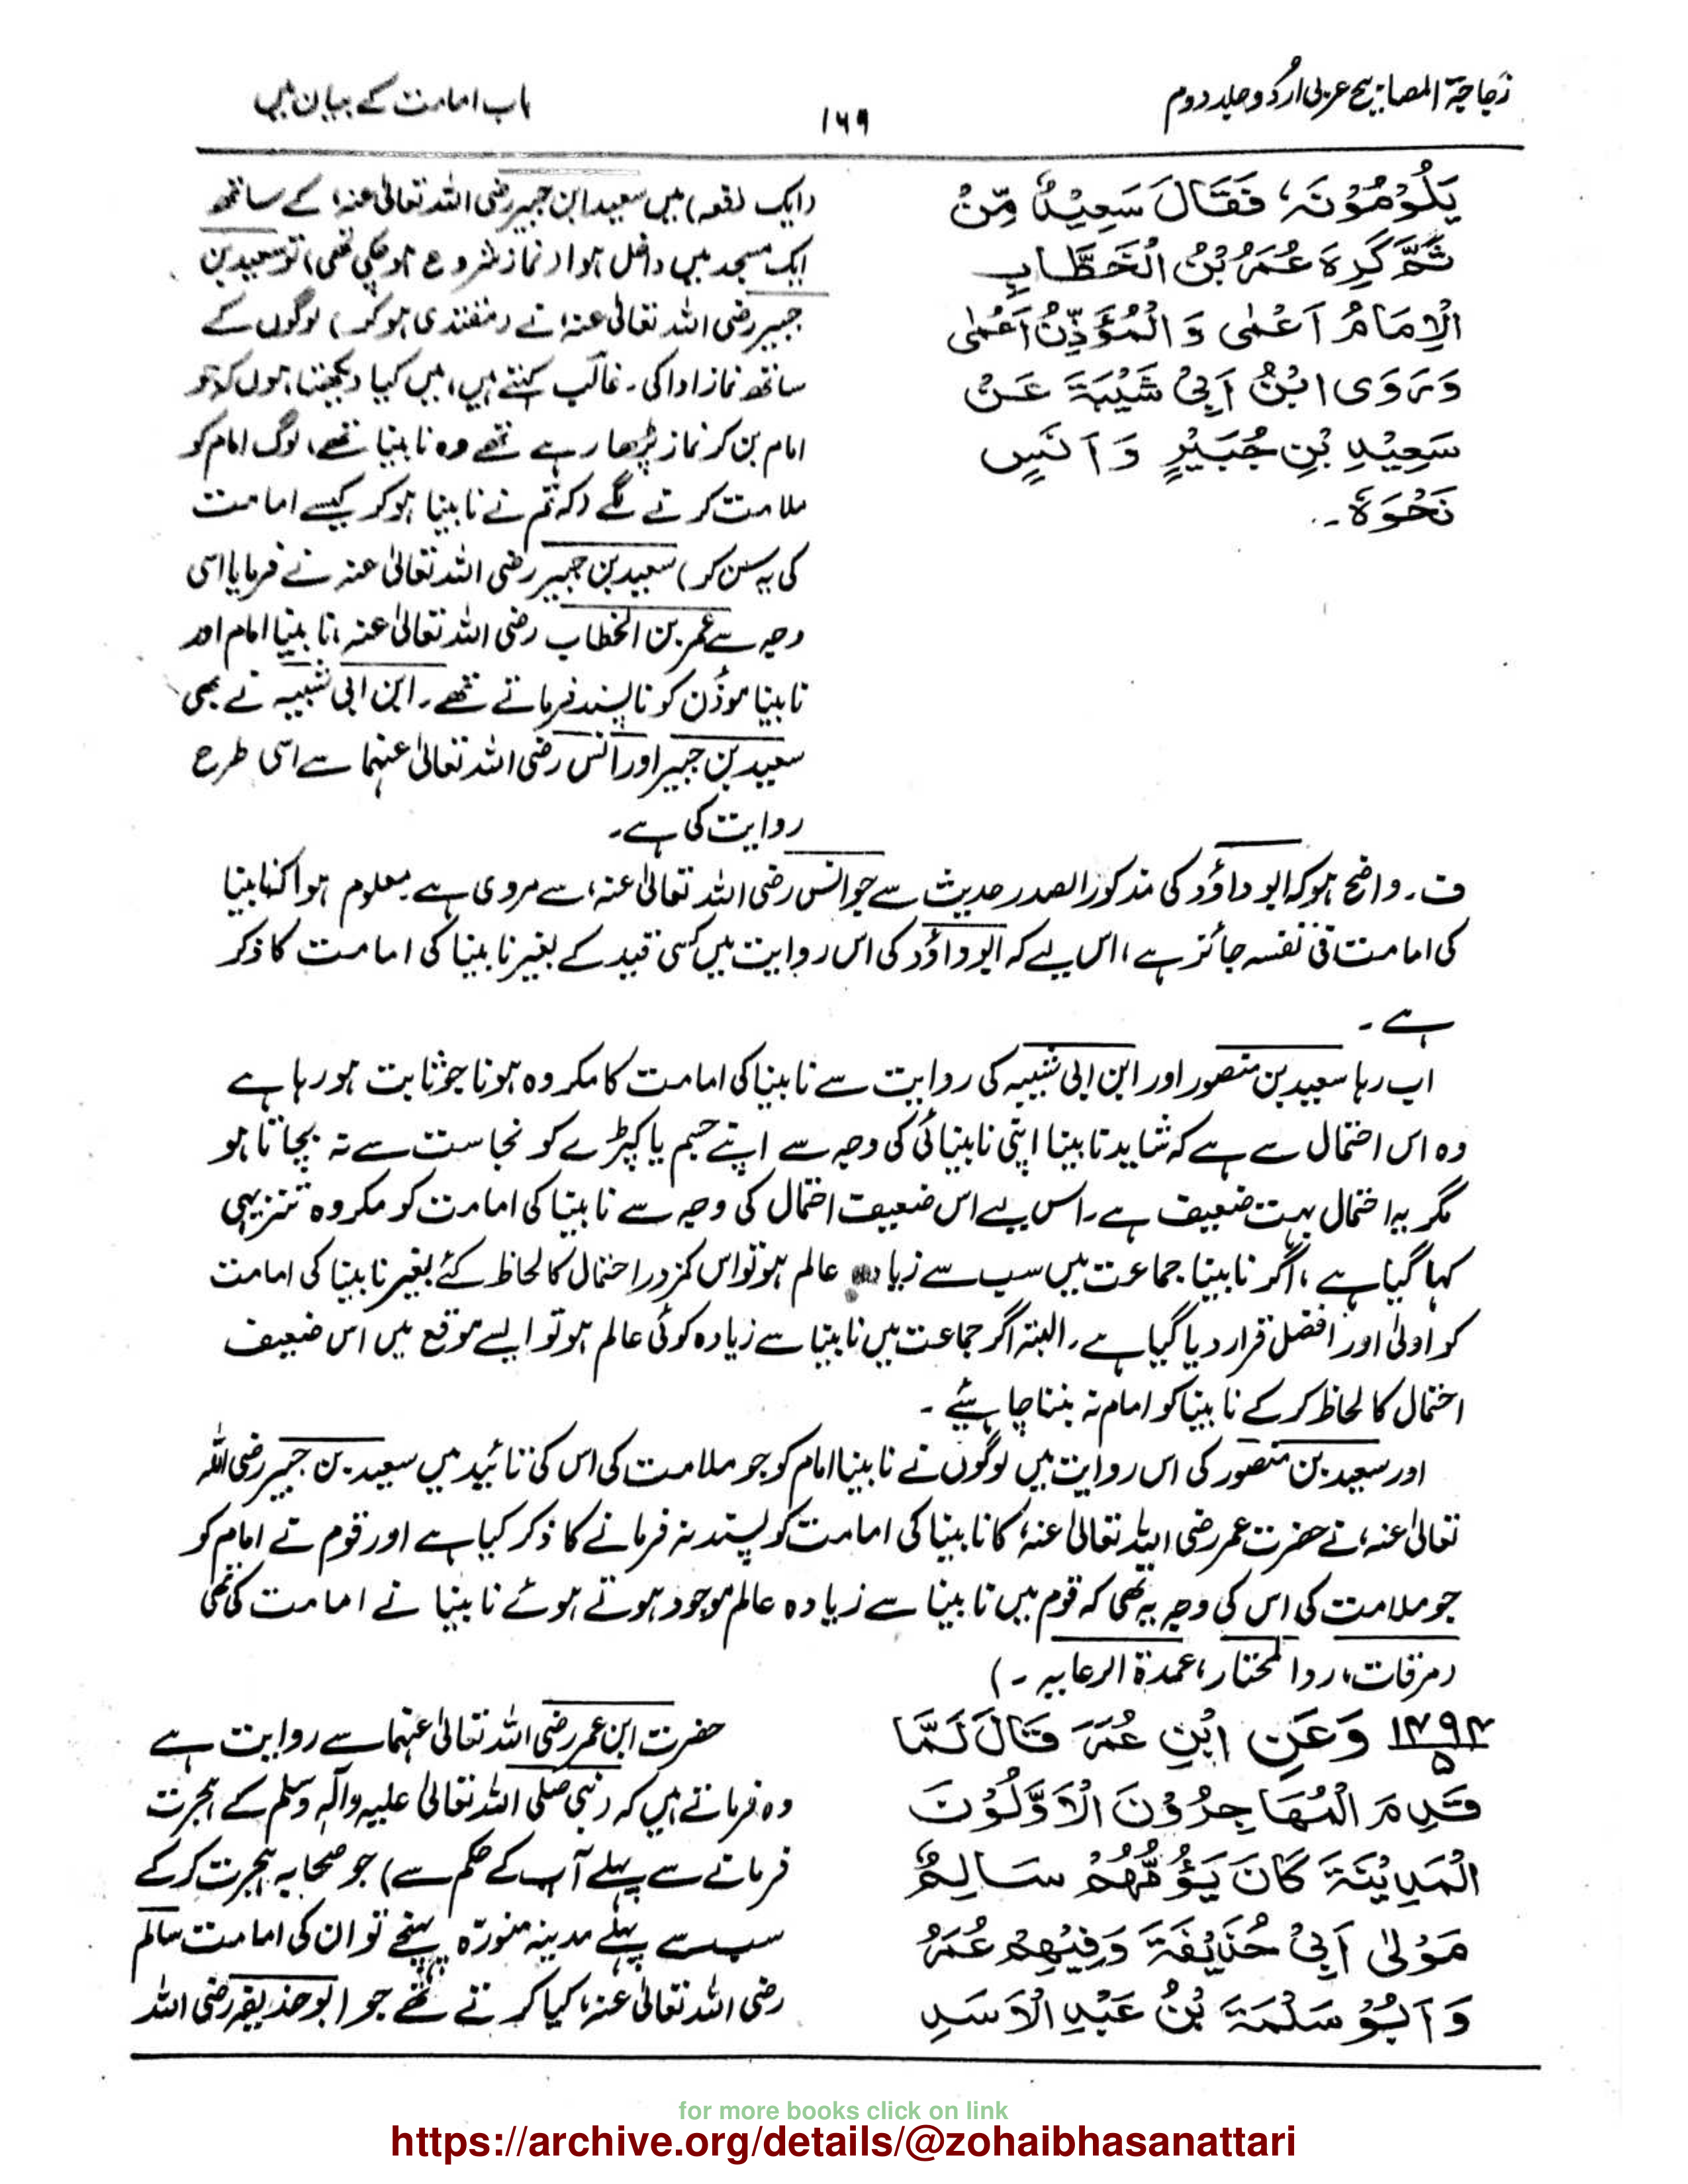 زجاجۃ المصابیح عربی اردو جلد دوم
۱۶۹
باب امامت کے بیان میں
يَلُوْمُوْنَهٗ، فَقَالَ سَعِيْدٌ مِّنْ
ثَمَّ كَرِهَ عُمَرُ بْنُ الْخَطَّابِ
الْإِمَامُ اَعْمٰى وَ الْمُؤَذِّنُ اَعْمٰى
وَرَوَى ابْنُ اَبِيْ شَيْبَةَ عَنْ
سَعِيْدِ بْنِ جُبَيْرٍ وَ اَنَسٍ
نَحْوَهٗ ۔
(ایک دفعہ) میں سعید ابن جبیر رضی اللہ تعالیٰ عنہ، کے ساتھ
ایک مسجد میں داخل ہوا (نماز شروع ہو چکی تھی) تو سعید بن
جبیر رضی اللہ تعالیٰ عنہ، نے (مقتدی ہو کر) لوگوں کے
ساتھ نماز ادا کی۔ غالب کہتے ہیں، میں کیا دیکھتا ہوں کہ جو
امام بن کر نماز پڑھا رہے تھے وہ نابینا تھے، لوگ امام کو
ملامت کرنے لگے (کہ تم نے نابینا ہو کر کیسے امامت
کی یہ سن کر) سعید بن جبیر رضی اللہ تعالیٰ عنہ نے فرمایا اسی
وجہ سے عمر بن الخطاب رضی اللہ تعالیٰ عنہ، نابینا امام اور
نابینا موذن کو ناپسند فرماتے تھے۔ ابن ابی شیبہ نے بھی
سعید بن جبیر اور انس رضی اللہ تعالیٰ عنہما سے اسی طرح
روایت کی ہے۔
ف۔ واضح ہو کہ ابو داؤد کی مذکور الصدر حدیث سے جو انس رضی اللہ تعالیٰ عنہ، سے مروی ہے معلوم ہوا کہ نابینا
کی امامت فی نفسہ جائز ہے، اس لیے کہ ابو داؤد کی اس روایت میں کسی قید کے بغیر نابینا کی امامت کا ذکر
ہے۔
اب رہا سعید بن منصور اور ابن ابی شیبہ کی روایت سے نابینا کی امامت کا مکروہ ہونا جو ثابت ہو رہا ہے
وہ اس احتمال سے ہے کہ شاید نابینا اپنی نابینائی کی وجہ سے اپنے جسم یا کپڑے کو نجاست سے نہ بچاتا ہو
مگر یہ احتمال بہت ضعیف ہے۔ اس لیے اس ضعیف احتمال کی وجہ سے نابینا کی امامت کو مکروہ تنزیہی
کہا گیا ہے، اگر نابینا جماعت میں سب سے زیادہ عالم ہو تو اس کمزور احتمال کا لحاظ کئے بغیر نابینا کی امامت
کو اولیٰ اور افضل قرار دیا گیا ہے۔ البتہ اگر جماعت میں نابینا سے زیادہ کوئی عالم ہو تو ایسے موقع میں اس ضعیف
احتمال کا لحاظ کر کے نابینا کو امام نہ بننا چاہیئے ۔
اور سعید بن منصور کی اس روایت میں لوگوں نے نابینا امام کو جو ملامت کی اس کی تائید میں سعید بن جبیر رضی اللہ
تعالیٰ عنہ، نے حضرت عمر رضی اللہ تعالیٰ عنہ، کا نابینا کی امامت کو پسند نہ فرمانے کا ذکر کیا ہے اور قوم نے امام کو
جو ملامت کی اس کی وجہ یہ تھی کہ قوم میں نابینا سے زیادہ عالم موجود ہوتے ہوئے نابینا نے امامت کی تھی
(مرقات، ردالمحتار، عمدۃ الرعایہ ۔)
۱۴۹۴/۵ وَعَنِ ابْنِ عُمَرَ قَالَ لَمَّا
قَدِمَ الْمُهَاجِرُوْنَ الْاَوَّلُوْنَ
الْمَدِيْنَةَ كَانَ يَؤُمُّهُمْ سَالِمٌ
مَوْلٰى اَبِيْ حُذَيْفَةَ وَفِيْهِمْ عُمَرُ
وَ اَبُوْ سَلْمَةَ بْنُ عَبْدِ الْاَسَدِ
حضرت ابن عمر رضی اللہ تعالیٰ عنہما سے روایت ہے
وہ فرماتے ہیں کہ (نبی صلی اللہ تعالیٰ علیہ وآلہ وسلم کے ہجرت
فرمانے سے پہلے آپ کے حکم سے) جو صحابہ ہجرت کر کے
سب سے پہلے مدینہ منورہ پہنچے تو ان کی امامت سالم
رضی اللہ تعالیٰ عنہ، کیا کرتے تھے جو ابو حذیفہ رضی اللہ
for more books click on link
https://archive.org/details/@zohaibhasanattari